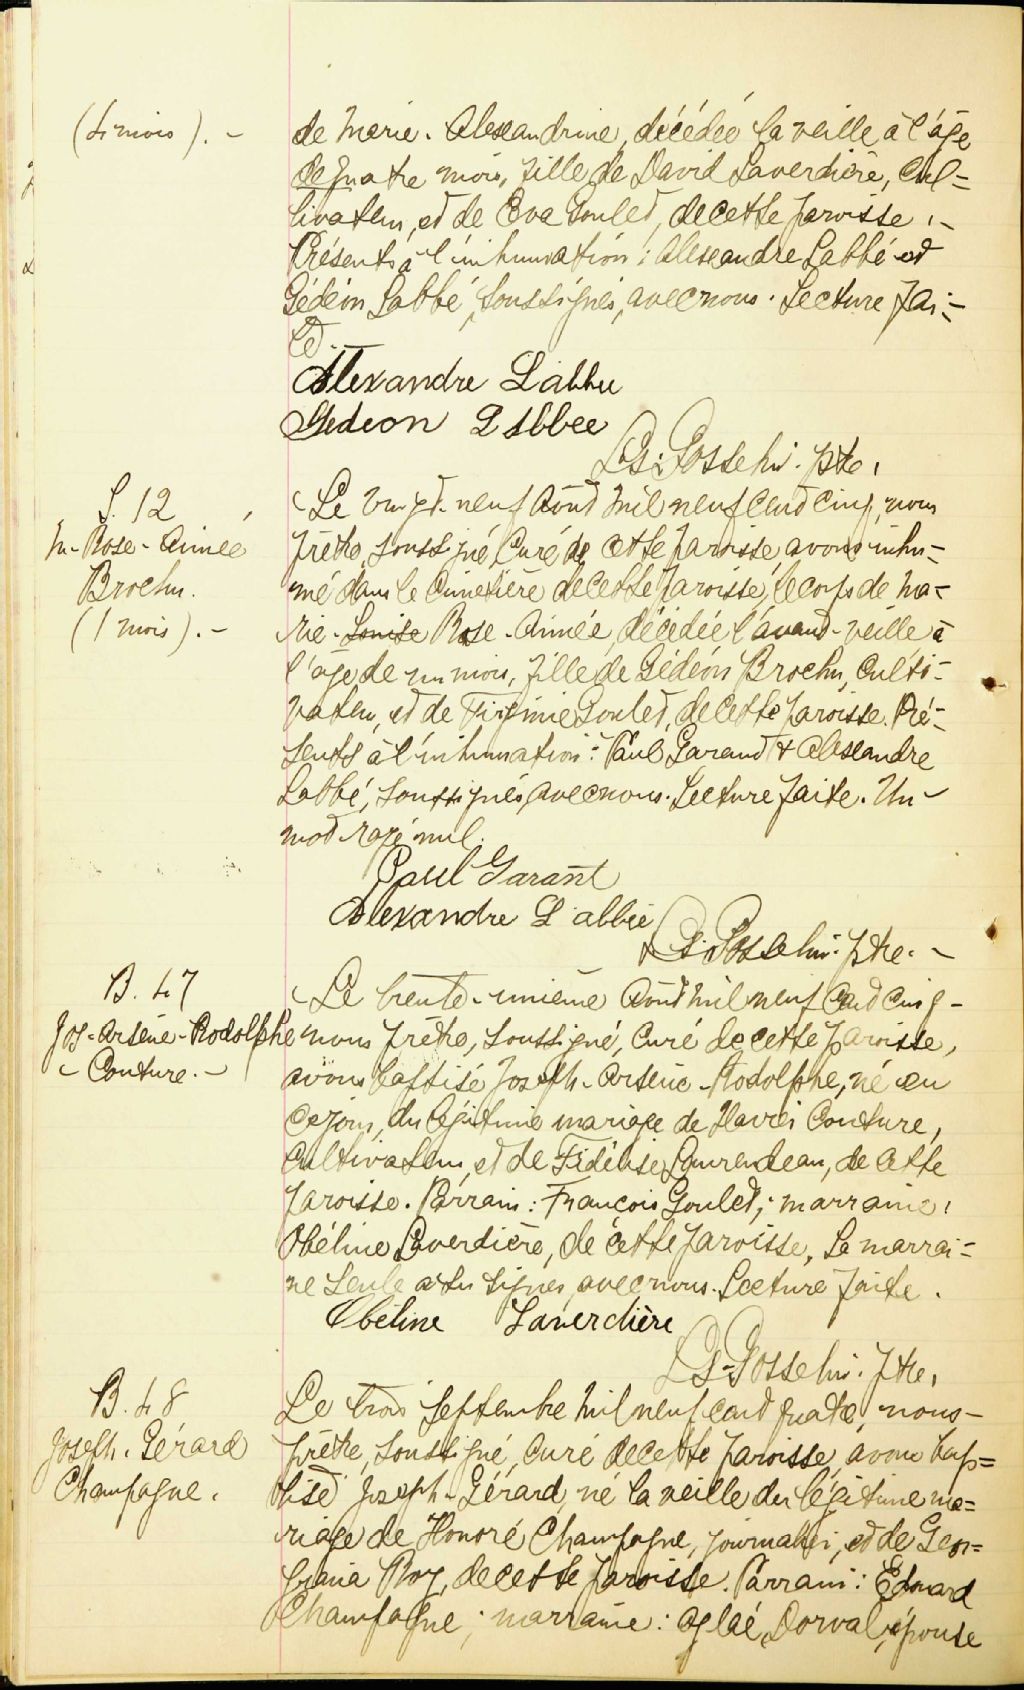 (4 mois). -
de Marie-Alexandrine, décédée la veille à l'âge
de quatre mois, fille de David Laverdière, cul=
tivateur, et de Eva Goulet, de cette paroisse. -
Présents à l'inhumation: Alexandre Labbé et
Gédéon Labbé, soussignés, avec nous. Lecture fai=
te.
Alexandre Labbee
Gedeon Labbee
Ls. Gosselin. ptre.
S. 12
M-Rose-Aimée
Brochu.
(1 mois). -
Le vingt-neuf Août mil neuf cent cinq, nous
prêtre, soussigné, Curé de cette paroisse, avons inhu=
mé dans le Cimetière de cette paroisse, le corps de Ma=
rie-Louise Rose-Aimée, décédée l'avant-veille à
l'âge de un mois, fille de Gédéon Brochu, culti=
vateur, et de Virginie Goulet, de cette paroisse. Pré=
sents à l'inhumation: Paul Garand & Alexandre
Labbé, soussignés, avec nous. Lecture faite. Un -
mot rayé nul.
Paul Garant
Alexandre Labbée
Ls. Gosselin. ptre. -
B. 47
Jos-Arsène-Rodolphe
- Couture. -
Le trente-unième Août mil neuf cent cinq -
nous prêtre, soussigné, curé de cette paroisse,
avons baptisé Joseph-Arsène-Rodolphe, né en
ce jour, du légitime mariage de Couture,
Cultivateur, et de Fidélise Laurendeau, de cette
paroisse. Parrain: François Goulet; marraine:
Obéline Laverdière, de cette paroisse. La marrai=
ne seule a su signer avec nous. Lecture faite.
Obéline Laverdière
Ls. Gosselin. ptre.
B. 48
Joseph-Gérard
Champagne.
Le trois Septembre mil neuf cent quatre, nous -
prêtre, soussigné, curé de cette paroisse, avons bap=
tisé Joseph-Gérard, né la veille du légitime ma=
riage de Honoré Champagne, journalier, et de Geor=
giana Roy, de cette paroisse. Parrain: Edouard
Champagne; marraine: Aglaé Dorval, épouse